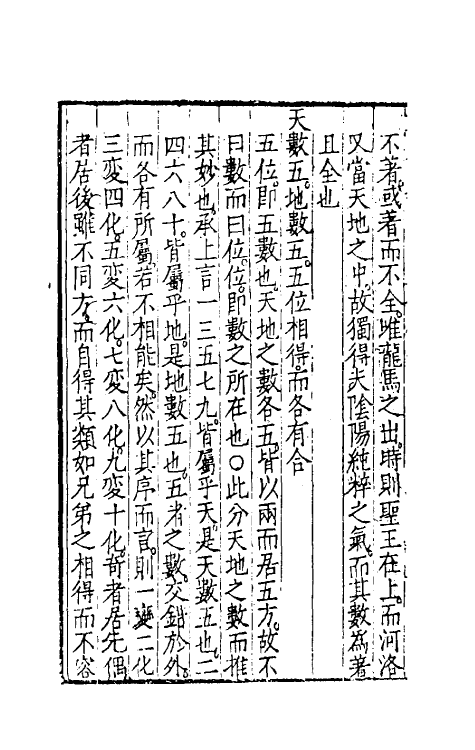 不著。或著而不全。唯龍馬之出。時則聖王在上。而河洛
又當天地之中。故獨得夫陰陽純粹之氣。而其數爲著
且全也
天數五。地數五。五位相得。而各有合
五位。即五數也。天地之數各五。皆以兩而居五方。故不
曰數而曰位。位。即數之所在也○此分天地之數而推
其妙也。承上言一三五七九。皆屬乎天。是天數五也。二
四六八十。皆屬乎地。是地數五也。五者之數。交錯於外。
而各有所屬。若不相能矣。然以其序而言。則一變二化
三変四化。五変六化。七変八化。九変十化。奇者居先。偶
者居後。雖不同方。而自得其類。如兄弟之相得而不容